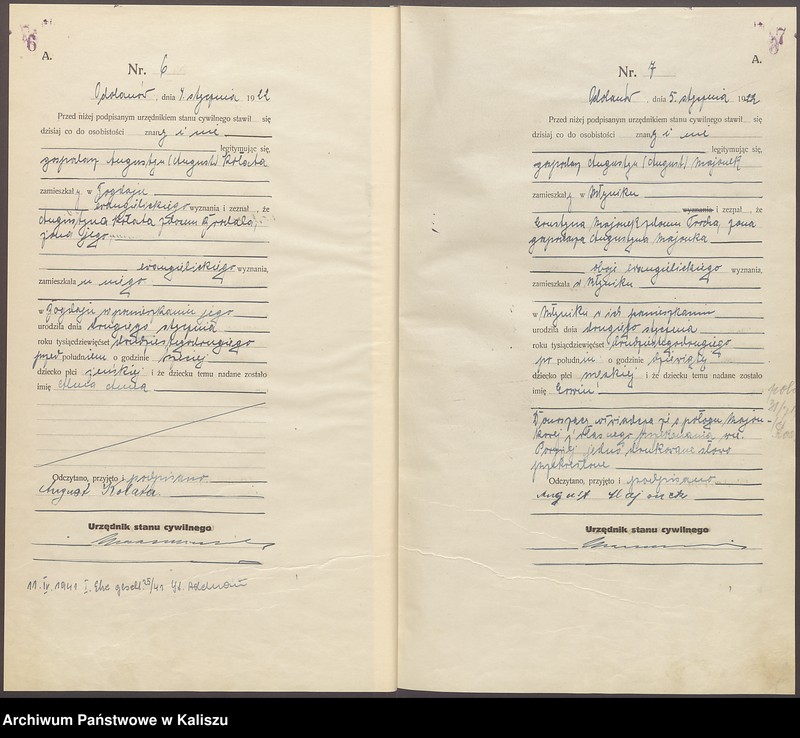 6
A.
Nr. 6
Odolanów, dnia 4 stycznia 1922
Przed niżej podpisanym urzędnikiem stanu cywilnego stawił się
dzisiaj co do osobistości znany i nie
legitymując się,
gospodarz Augustyn (August) Kołata
zamieszkały w
ewangelickiego wyznania i zeznał, że
Augustyna Kołata z domu
żona jego
ewangelickiego wyznania,
zamieszkała u niego
w w pomieszkaniu jego
urodziła dnia drugiego stycznia
roku tysiącdziewięćset dwudziestegodrugiego
przed południem o godzinie
dziecko płci żeńskiej i że dziecku temu nadane zostało
imię Anna
Odczytano, przyjęto i podpisano
August Kolata
Urzędnik stanu cywilnego
11. IV. 1941 I. Ehe geschl. 25/41
7
A.
Nr. 7
Odolanów, dnia 5. stycznia 1922
Przed niżej podpisanym urzędnikiem stanu cywilnego stawił się
dzisiaj co do osobistości znany i nie
legitymując się,
gospodarz Augustyn (August) Majonek
zamieszkały w
wyznania i zeznał, że
Ernstyna Majonek z domu żona
gospodarza Augustyna Majonka
oboje ewangelickiego wyznania,
zamieszkała w
w w ich pomieszkaniu
urodziła dnia drugiego stycznia
roku tysiącdziewięćset dwudziestegodrugiego
po południu o godzinie dziewiątej
dziecko płci męskiej i że dziecku temu nadane zostało
imię Erwin
Donoszący oświadcza że o połogu Majon-
kowej z własnego przekonania wie.
Powyżej jedno drukowane słowo
przekreślono
Odczytano, przyjęto i podpisano
August Majonek
Urzędnik stanu cywilnego
Archiwum Państwowe w Kaliszu